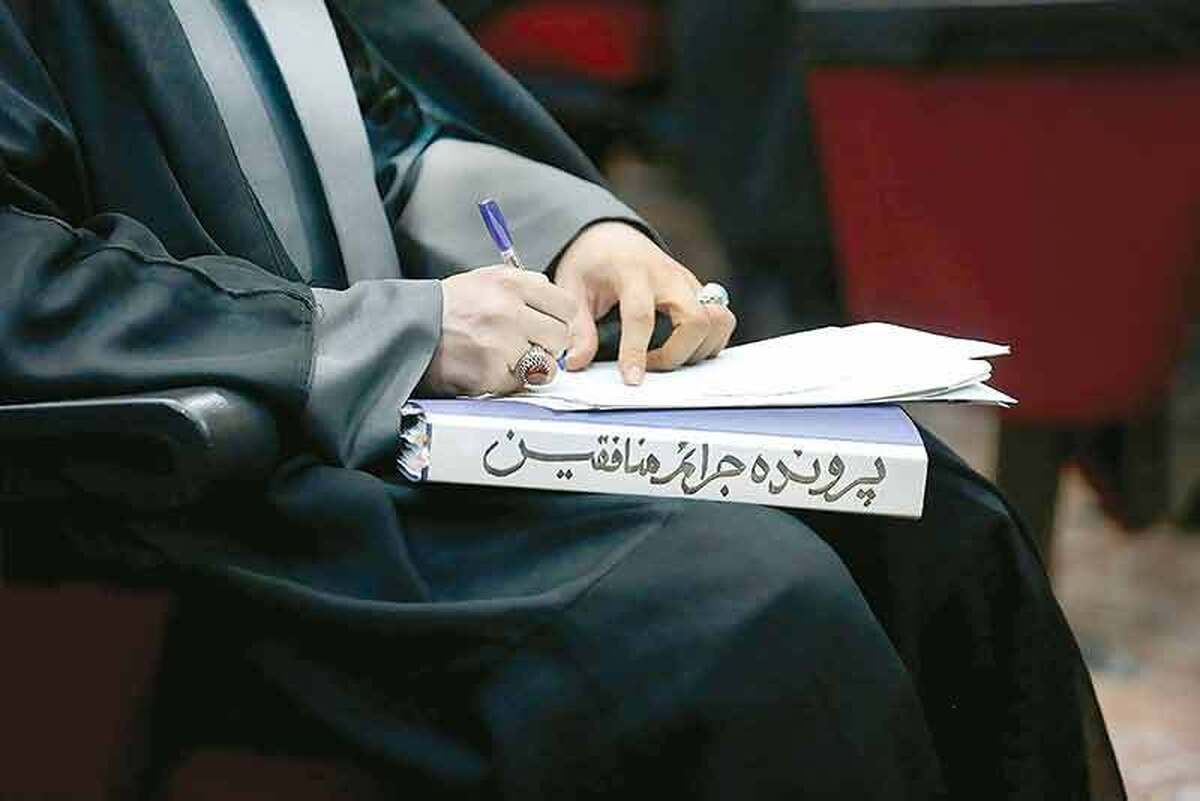 پرونده جرائم منافقین